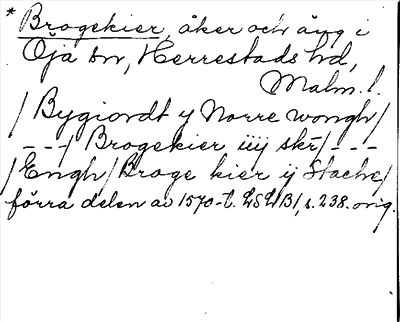 * Brogekier, åker och äng i
Öja sn, Herrestads hd,
Malm. l.
/ Bygiordt y Norre wongh /
- - - / Brogekier iiij skr / - - -
/ Engh / Broge kier ij Stache /
förra delen av 1570-t. LSLB1, s. 238. orig.